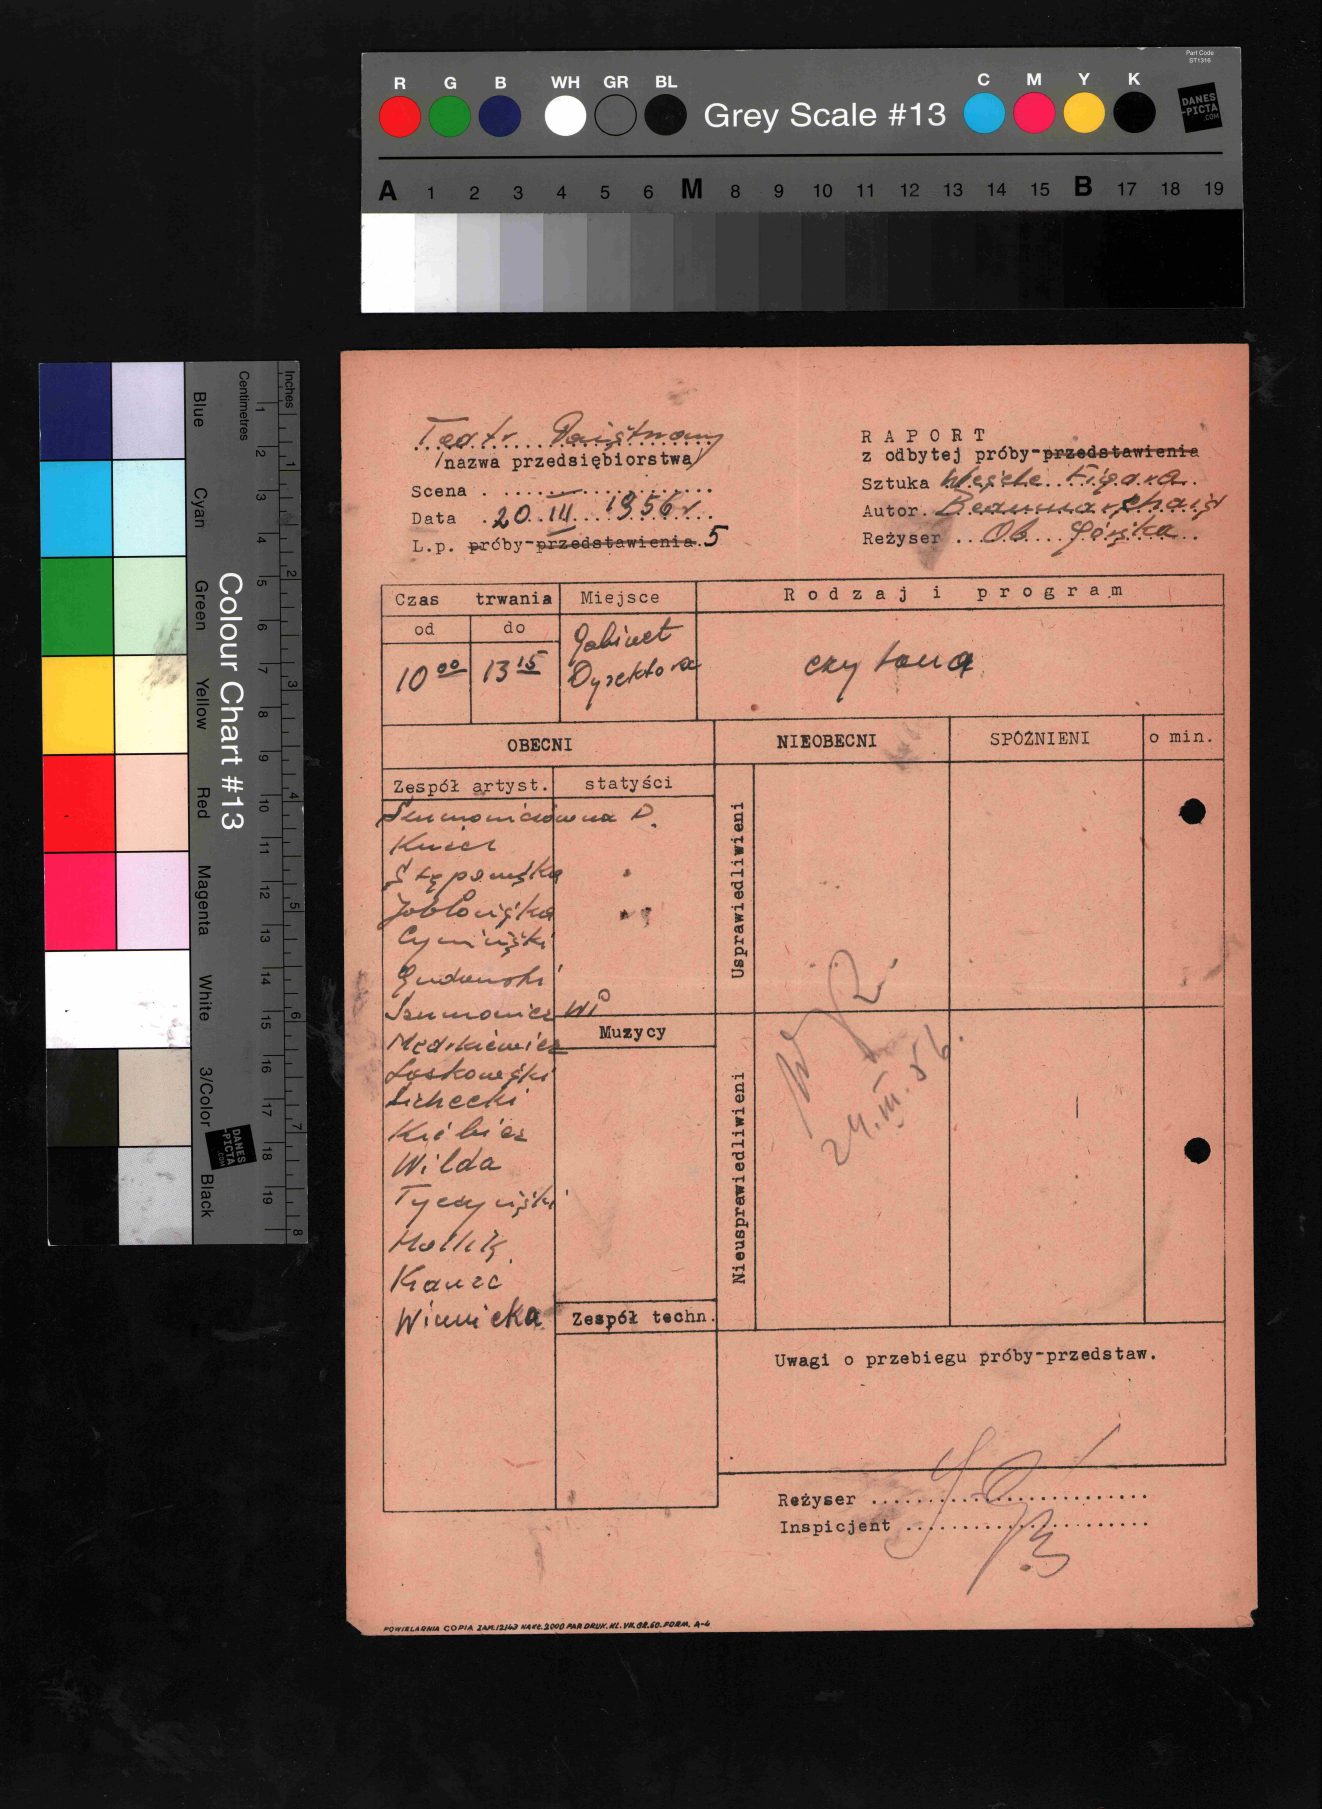 Part Code
ST1316
R G B WH GR BL Grey Scale #13 C M Y K
DANES
-PICTA
.COM
A 1 2 3 4 5 6 M 8 9 10 11 12 13 14 15 B 17 18 19
Colour Chart #13
Blue Cyan Green Yellow Red Magenta White 3/Color Black
Centimetres
1 2 3 4 5 6 7 8 9 10 11 12 13 14 15 16 17 18 19
Inches
1 2 3 4 5 6 7 8
DANES
-PICTA
.COM
Teatr Państwowy
/nazwa przedsiębiorstwa/
Scena
Data 20 III 1956 r.
L.p. próby-przedstawienia 5
RAPORT
z odbytej próby-przedstawienia
Sztuka Wesele Figara
Autor Beaumarchais
Reżyser Ob. Górska
Czas trwania Miejsce Rodzaj i program
od do
10 00 13 15 Gabinet Dyrektora czytana
OBECNI NIEOBECNI SPÓŹNIENI o min.
Zespół artyst. statyści
Usprawiedliwieni
Stępowska
Jabłońska
Cymiński
Muzycy
Laskowski
Lichecki
Wilda
Tyczyński
Winnicka
Zespół techn.
Nieusprawiedliwieni
24.III.56.
Uwagi o przebiegu próby-przedstaw.
Reżyser
Inspicjent
POWIELARNIA COPIA ZAM.12143 NAKŁ.2000 PAP.DRUK.KL.VII.GR.60.FORM. A-4